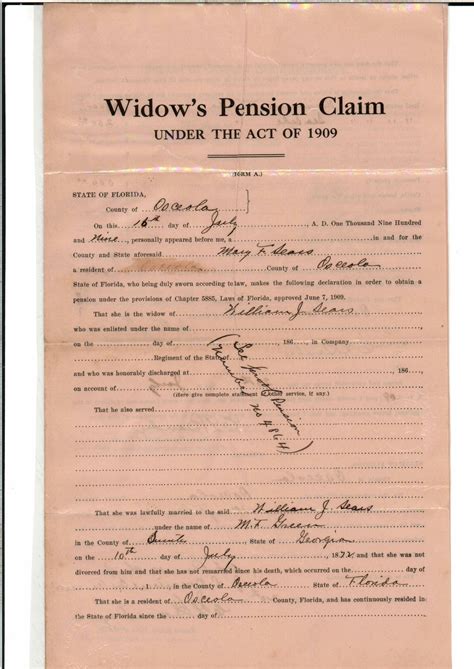 Widow's Pension Claim
UNDER THE ACT OF 1909
(FORM A.)
STATE OF FLORIDA,
County of Osceola
On this 16th day of July, A. D. One Thousand Nine Hundred
and Nine, personally appeared before me, a in and for the
County and State aforesaid Mary F. Sears
a resident of County of Osceola
State of Florida, who being duly sworn according to law, makes the following declaration in order to obtain a
pension under the provisions of Chapter 5885, Laws of Florida, approved June 7, 1909.
That she is the widow of William J. Sears
who was enlisted under the name of
on the day of, 186, in Company
Regiment of the State of
and who was honorably discharged at 186
on account of
(Here give complete statement of other service, if any.)
That he also served
(See proof Pension
Number
no 4864)
That she was lawfully married to the said William J. Sears
under the name of M. F. Green
in the County of State of Georgia
on the 10th day of July 1872 and that she was not
divorced from him and that she has not remarried since his death, which occurred on the day of
, 1, in the County of Osceola State of Florida
That she is a resident of Osceola County, Florida, and has continuously resided in
the State of Florida since the day of